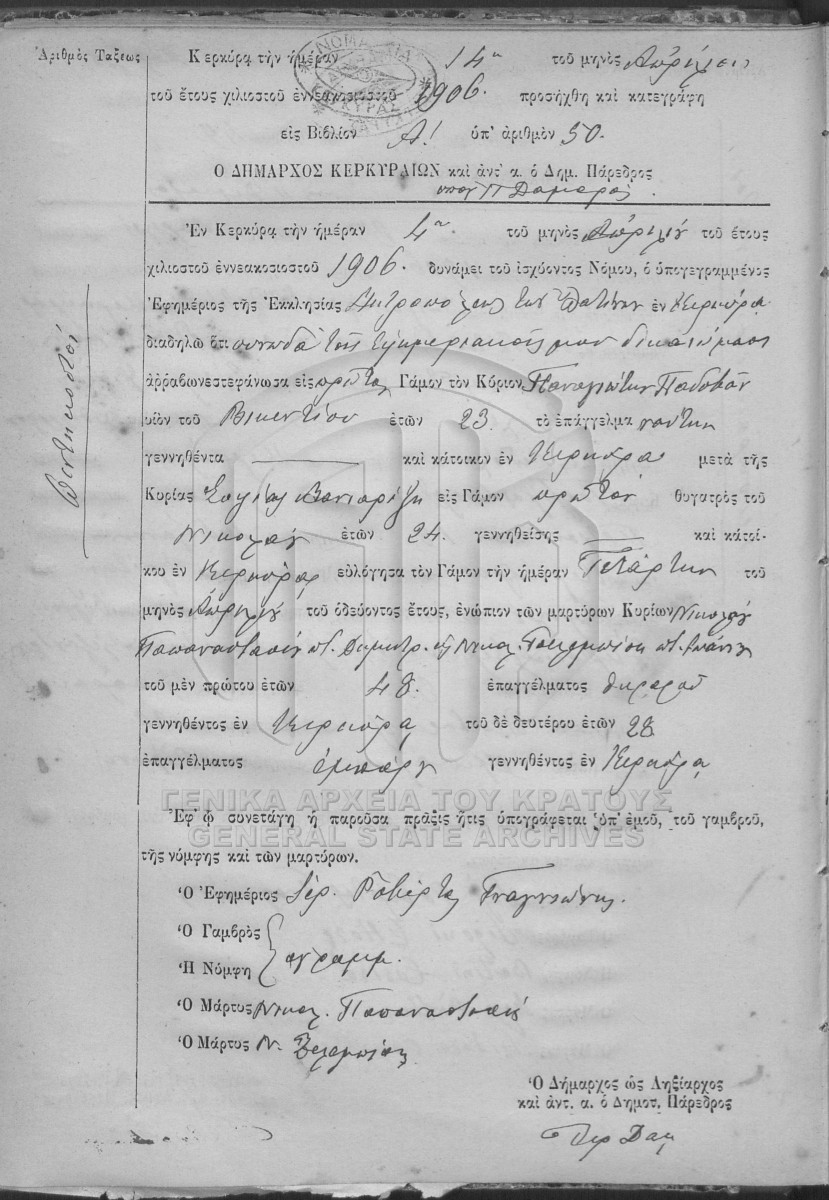 Ἀριθμὸς Τάξεως
Κερκύρᾳ τὴν ἡμέραν 14η τοῦ μηνὸς Ἀπριλίου
τοῦ ἔτους χιλιοστοῦ ἐννεακοσιοστοῦ 1906. προσήχθη καὶ κατεγράφη
εἰς Βιβλίον Α! ὑπ' ἀριθμὸν 50.
Ο ΔΗΜΑΡΧΟΣ ΚΕΡΚΥΡΑΙΩΝ καὶ ἀντ' α. ὁ Δημ. Πάρεδρος
Ἐν Κερκύρᾳ τὴν ἡμέραν 4η τοῦ μηνὸς Ἀπριλίου τοῦ ἔτους
χιλιοστοῦ ἐννεακοσιοστοῦ 1906. δυνάμει τοῦ ἰσχύοντος Νόμου, ὁ ὑπογεγραμμένος
Ἐφημέριος τῆς Ἐκκλησίας Μητροπόλεως των Λατίνων ἐν Κερκύρᾳ
διαδηλῶ ὅτι συνωδά τοῖς ἐφημεριακοῖς μου δικαιώμασι
ἀρραβωνεστεφάνωσα εἰς πρῶτον Γάμον τὸν Κύριον Παναγιώτην Παδοβάν
υἱὸν τοῦ Βικεντίου ἐτῶν 23. τὸ ἐπάγγελμα ναύτην
γεννηθέντα — καὶ κάτοικον ἐν Κερκύρᾳ μετὰ τῆς
Κυρίας Σοφίας εἰς Γάμον πρῶτον θυγατρὸς τοῦ
Νικολάου ἐτῶν 24. γεννηθείσης — καὶ κάτοι-
κου ἐν Κερκύρᾳ εὐλόγησα τὸν Γάμον τὴν ἡμέραν Τετάρτην τοῦ
μηνὸς Ἀπριλίου τοῦ ὁδεύοντος ἔτους, ἐνώπιον τῶν μαρτύρων Κυρίων Νικολάου
Παπαναστασίου Δημητρ. Νικολ.
τοῦ μὲν πρώτου ἐτῶν 48. ἐπαγγέλματος θυρωροῦ
γεννηθέντος ἐν Κερκύρᾳ τοῦ δὲ δευτέρου ἐτῶν 28
ἐπαγγέλματος ἐμπόρου γεννηθέντος ἐν Κερκύρᾳ
ΓΕΝΙΚΑ ΑΡΧΕΙΑ ΤΟΥ ΚΡΑΤΟΥΣ
Ἐφ' ᾧ συνετάγη ἡ παροῦσα πρᾶξις ἥτις ὑπογράφεται ὑπ' ἐμοῦ, τοῦ γαμβροῦ,
GENERAL STATE ARCHIVES
τῆς νύμφης καὶ τῶν μαρτύρων.
Ὁ Ἐφημέριος Ἱερ. Ροβέρτος
Ὁ Γαμβρὸς
Ἡ Νύμφη ἀγράμμ.
Ὁ Μάρτυς Νικολ. Παπαναστασίου
Ὁ Μάρτυς Ν.
Ὁ Δήμαρχος ὡς Ληξίαρχος
καὶ ἀντ. α. ὁ Δημοτ. Πάρεδρος
Πεντηκοστόν